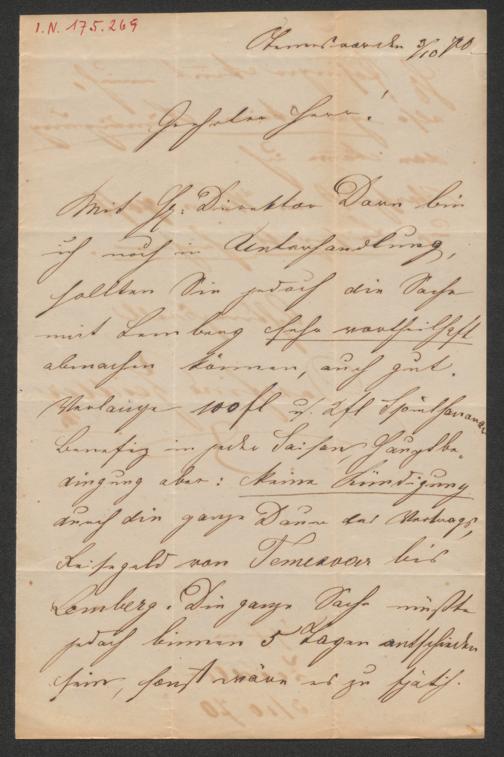 I.N. 175.269
Temesvar den 3/10 70
Geehrter Herr!
Mit H: Direktor Dorn bin
ich noch in Unterhandlung,
sollten Sie jedoch die Sache
mit Lemberg sehr vortheilhaft
abmachen können, auch gut.
Verlange 100 fl u. 2 fl Spielhonorar
Benefiz in jeder Saison Hauptbe-
dingung aber: Keine Kündigung
durch die ganze Dauer des Vertrags,
Reisegeld von Temesvar bis
Lemberg. Die ganze Sache müßte
jedoch binnen 5 Tagen entschieden
sein, sonst wäre es zu spät.